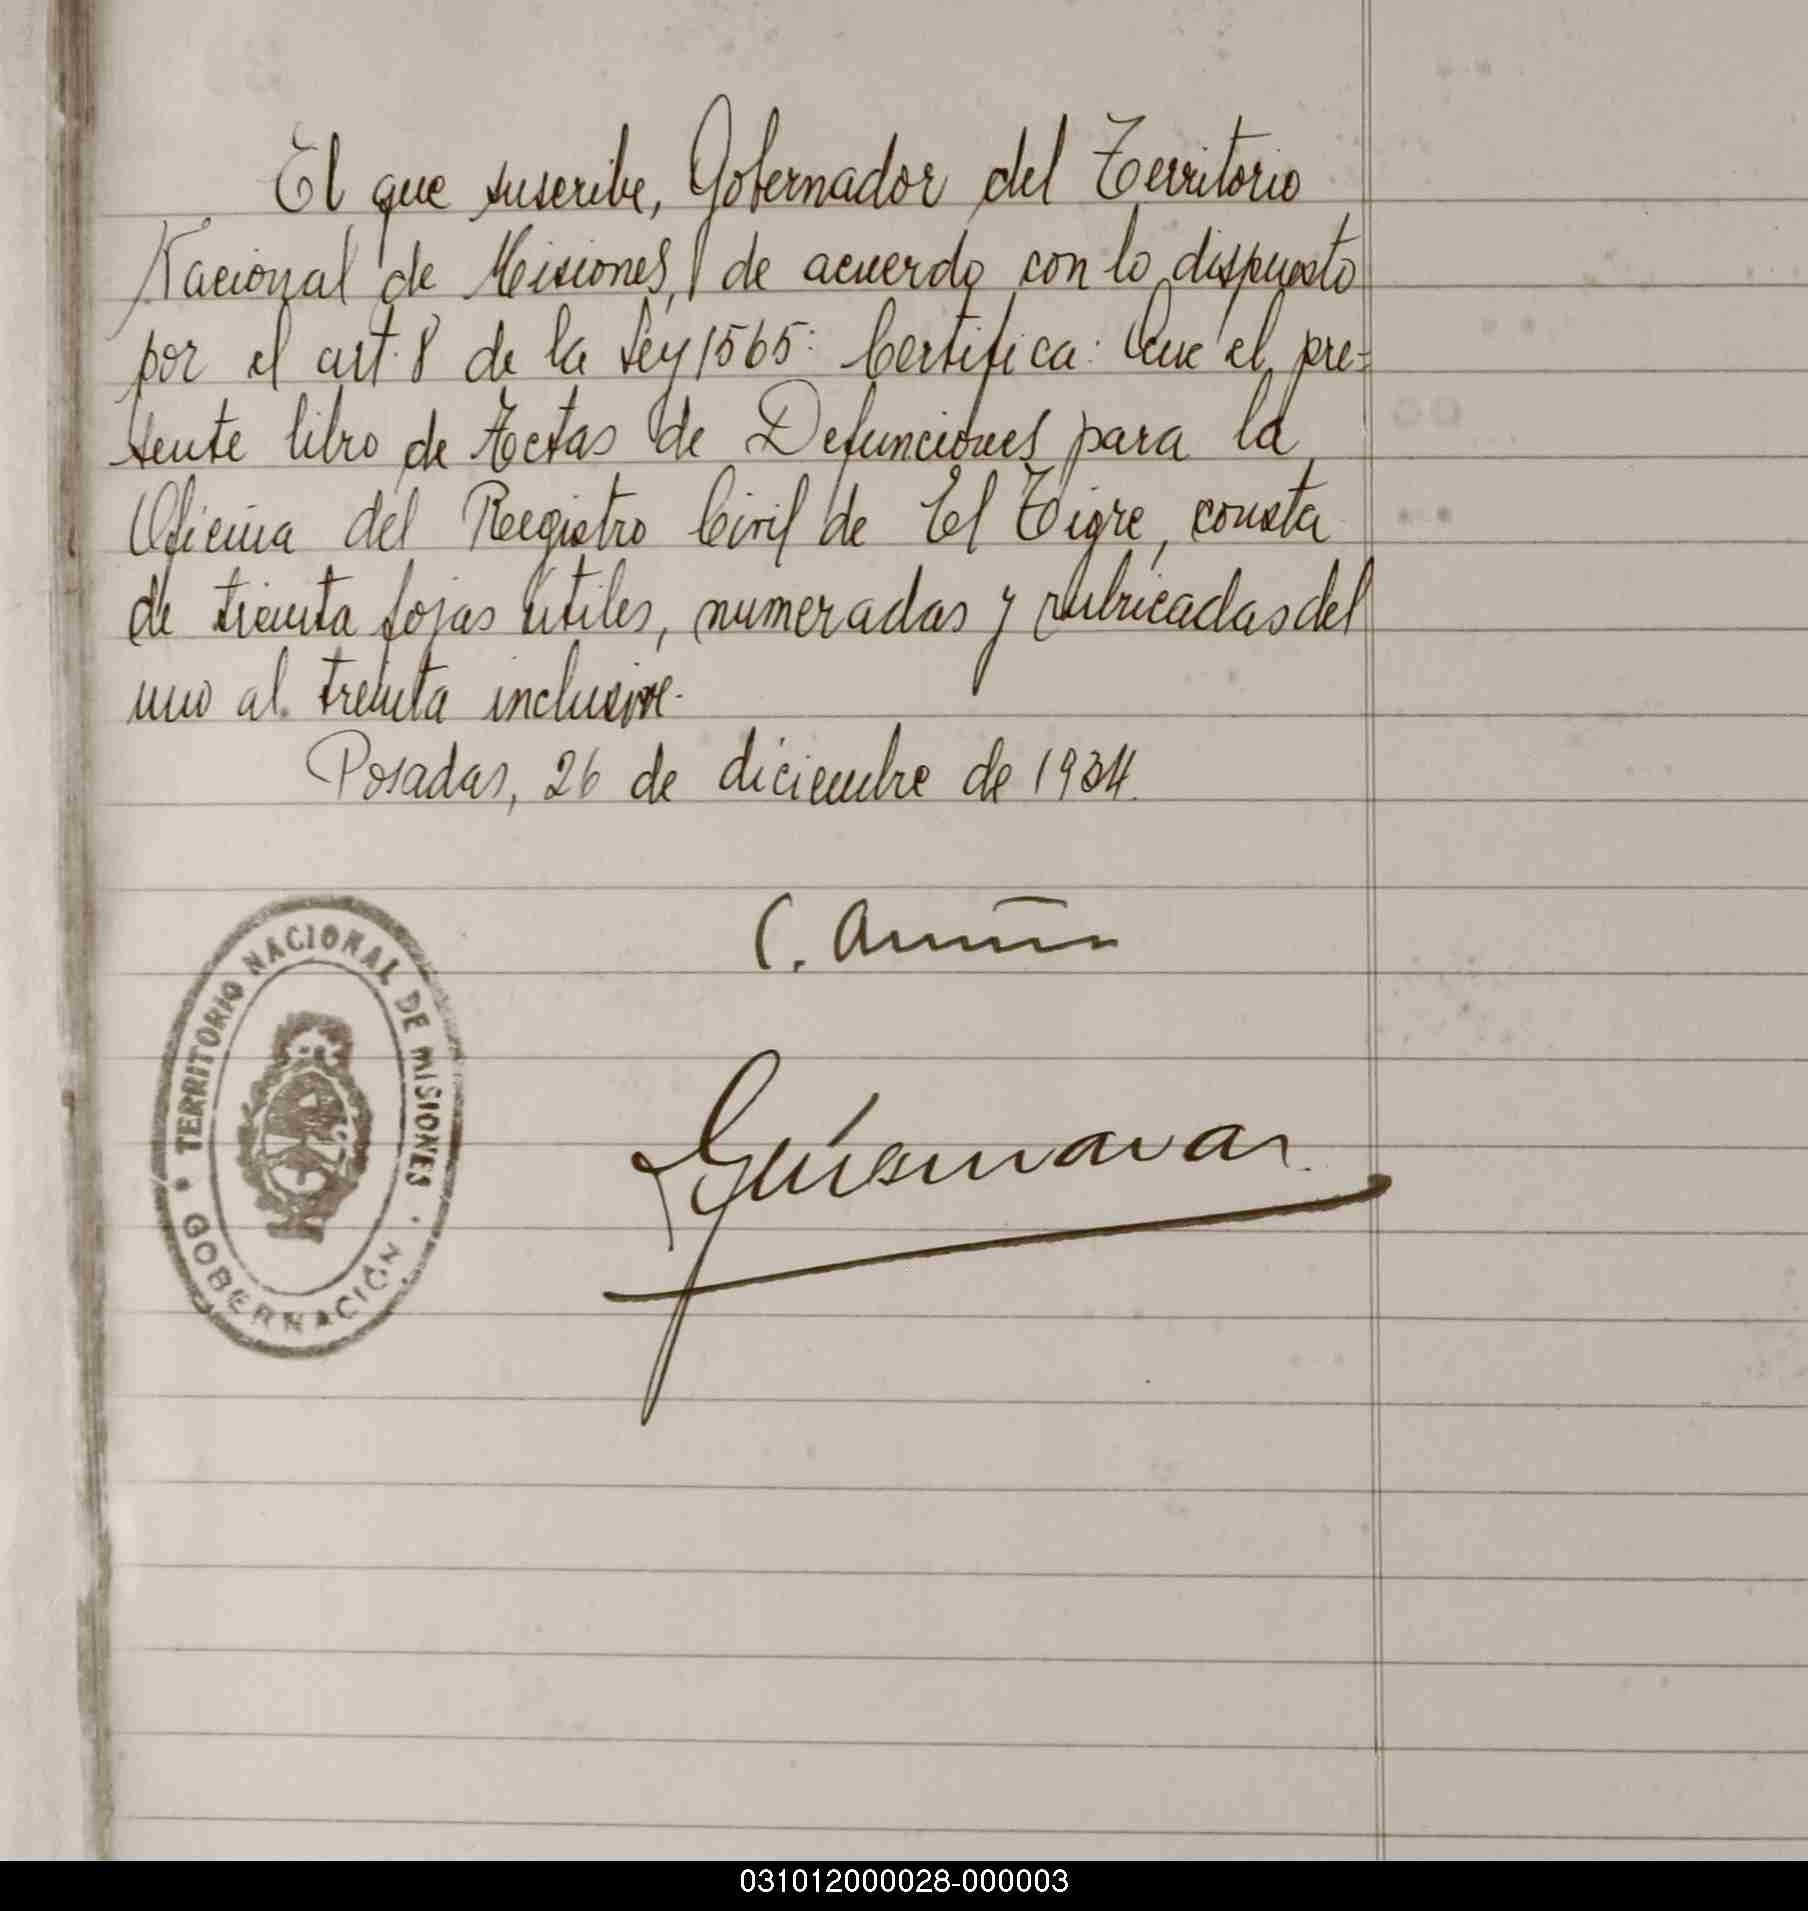 El que suscribe, Gobernador del Territorio
Nacional de Misiones, de acuerdo con lo dispuesto
por el art. 8 de la Ley 1565: Certifica: Que el pre=
sente libro de Actas de Defunciones para la
Oficina del Registro Civil de El Tigre, consta
de treinta fojas útiles, numeradas y rubricadas del
uno al treinta inclusive.
Posadas, 26 de diciembre de 1934.
C. 
TERRITORIO NACIONAL DE MISIONES
GOBERNACIÓN
031012000028-000003